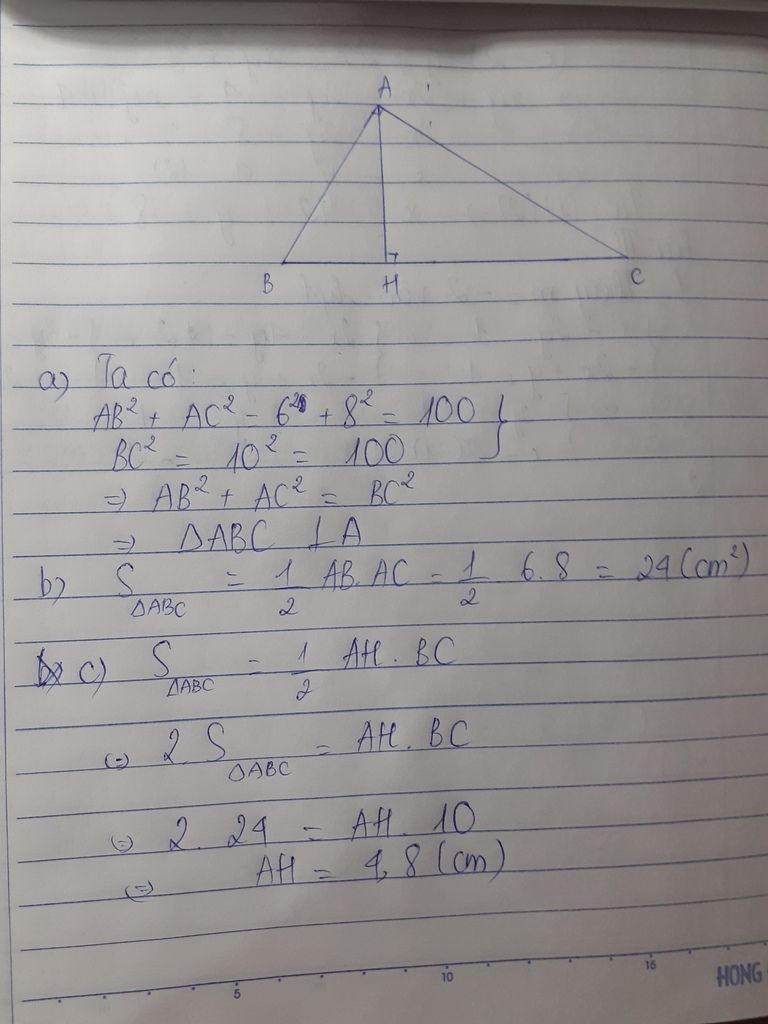 A
B H C
a) Ta có:
AB² + AC² = 6² + 8² = 100 }
BC² = 10² = 100
⇒ AB² + AC² = BC²
⇒ ΔABC ⊥ A
b) S ΔABC = 1/2 AB. AC = 1/2 6. 8 = 24 (cm²)
c) S ΔABC = 1/2 AH. BC
(=) 2. S ΔABC = AH. BC
(=) 2. 24 = AH. 10
(=) AH = 4,8 (cm)
5 10 15 HONG